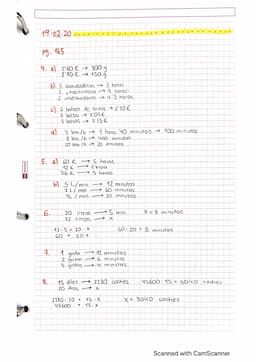 19·02·20
pg. 165
4. a) 5'40 € → 300 g
2'70 € → 150 g
b) 3 → 3 horas
1 → 9 horas
2 → 4'5 horas
c) 2 bolsas de → 2'10 €
1 bolsa → 1'05 €
3 bolsas → 3'15 €
d) 2 km/h → 1 hora 40 minutos → 100 minutos
1 km/h → minutos
10 km/h → 20 minutos
5. a) 60 € → 5 horas
12 € → 1 hora
36 € → 3 horas
b) 5 L/min → 12 minutos
1 L/min → 60 minutos
L/min → minutos
6. 20 litros → 5 min x = 3 minutos
12 litros → x
12 · 5 = 20 · x 60 : 20 = 3 minutos
60 = 20 · x
7. 1 grifo → 12 minutos
2 grifos → 6 minutos
3 grifos → 4 minutos
8. 15 días → 2280 coches 45600 : 15 = 3040 coches
20 días → x
2280 · 20 = 15 · x x = 3040 coches
45600 = 15 · x
Scanned with CamScanner